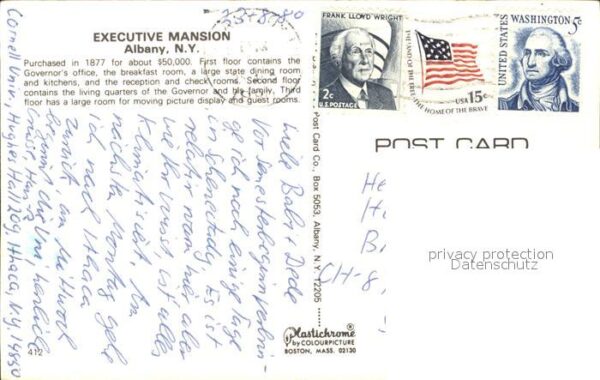 EXECUTIVE MANSION
Albany, N.Y.
Purchased in 1877 for about $50,000. First floor contains the
Governor's office, the breakfast room, a large state dining room
and kitchens, and the reception and check rooms. Second floor
contains the living quarters of the Governor and his family. Third
floor has a large room for moving picture display and guest rooms.
Liebe Baby + Dede
Vor Semesterbeginn verbrin-
ge ich noch einige Tage
in Schenectady. Es ist
relativ warm hie, aber
wie Ihr wisst, ist alles
klimatisiert. Am
nächsten Montag gehe
ich nach Ithaca
zurück, am Mittwoch
beginnt die Uni. herzliche
Grüsse, Hans
Cornell Univ., Hughes Hall 209, Ithaca, N.Y. 14850
412
Post Card Co., Box 5053, Albany, N.Y. 12205
Plastichrome
by COLOURPICTURE
BOSTON, MASS. 02130
FRANK LLOYD WRIGHT
2c
U.S. POSTAGE
THE LAND OF THE FREE
THE HOME OF THE BRAVE
USA 15c
UNITED STATES
WASHINGTON 5c
POST CARD
He
H
B
CH-8
privacy protection
Datenschutz